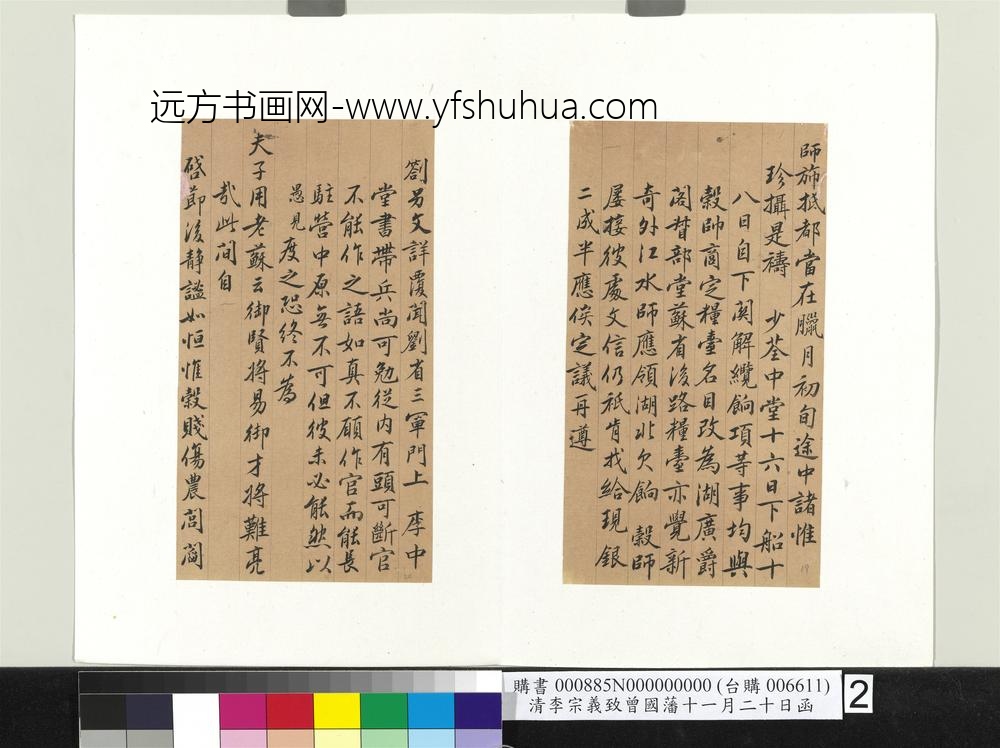 远方书画网-www.yfshuhua.com
師旆抵都當在臘月初旬途中諸惟
珍攝是禱　少荃中堂十六日下船十
八日自下關解纜餉項等事均與
穀帥商定糧臺名目改為湖廣爵
閣督部堂蘇省後路糧臺亦覺新
奇外江水師應領湖北欠餉　穀師
屢接彼處文信仍祇肯找給現銀
二成半應俟定議再遵
劄另文詳覆聞劉省三軍門上　李中
堂書帶兵尚可勉從内有頭可斷官
不能作之語如真不願作官而能長
駐營中原無不可但彼未必能然以
愚見度之恐終不為
夫子用老蘇云御賢將易御才將難亮
哉此間自
啓節後静謐如恒惟穀賤傷農閭閻
19
20
購書 000885N000000000 (台購 006611)
清李宗義致曾國藩十一月二十日函
2